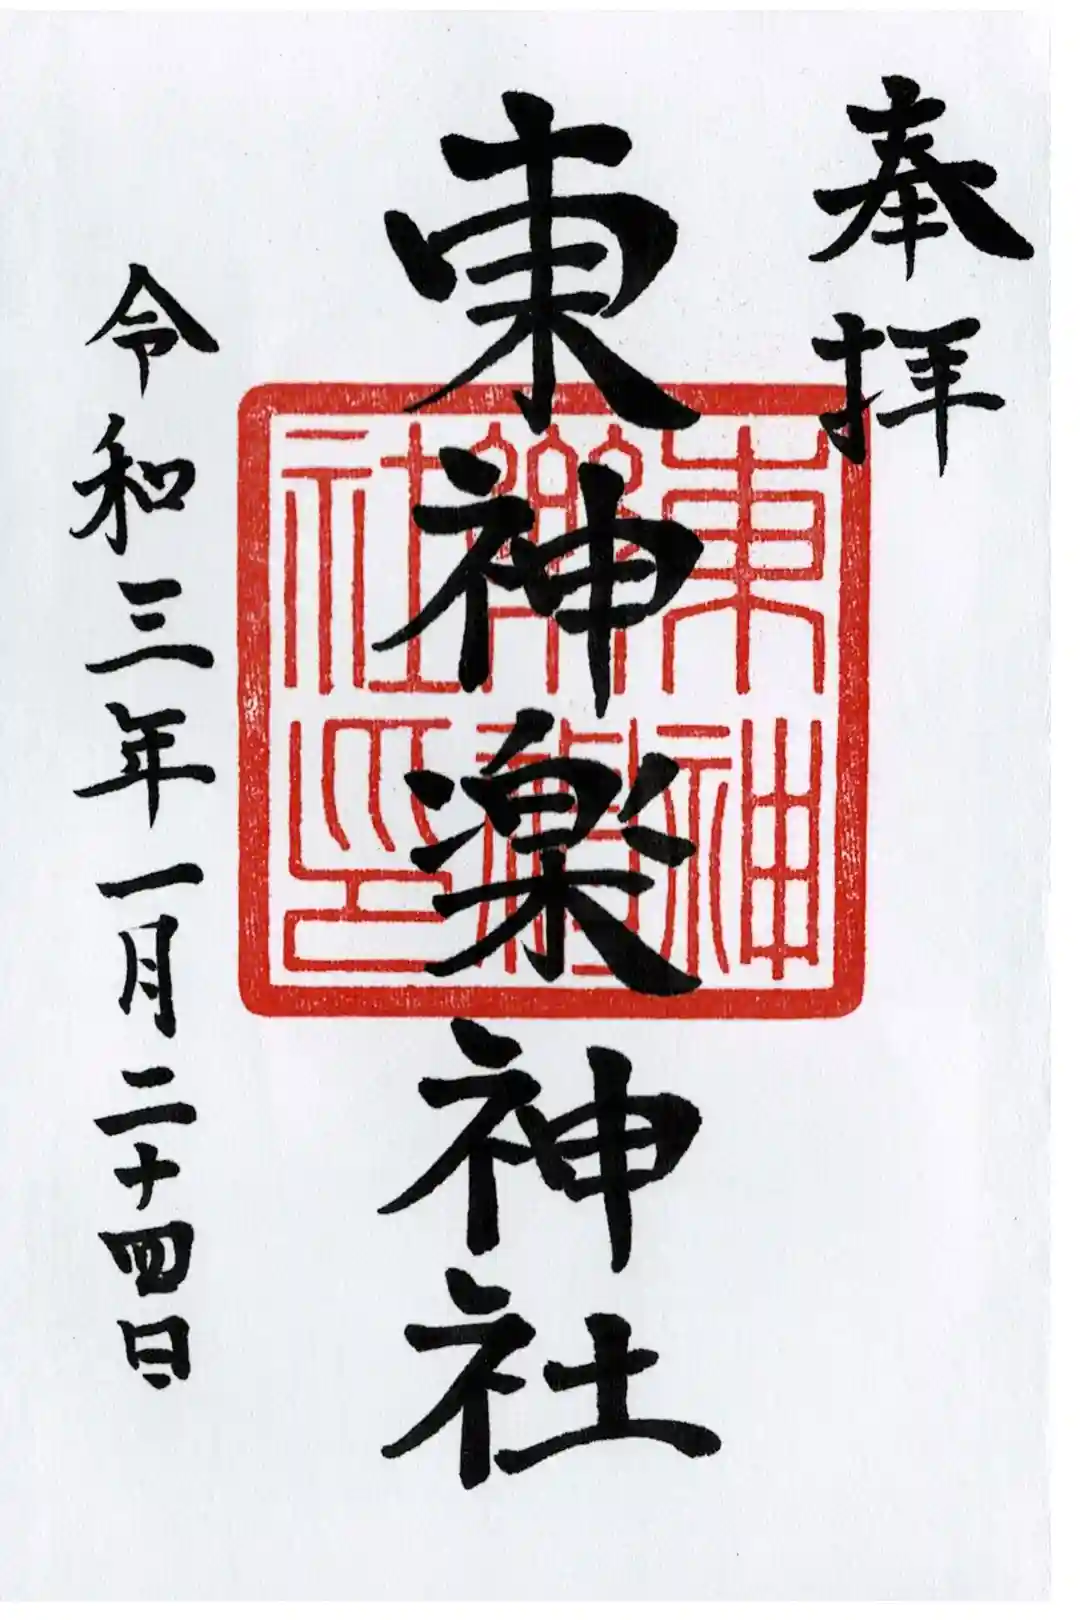 奉拝
東神楽神社
東神
樂神
社印
令和三年一月二十四日